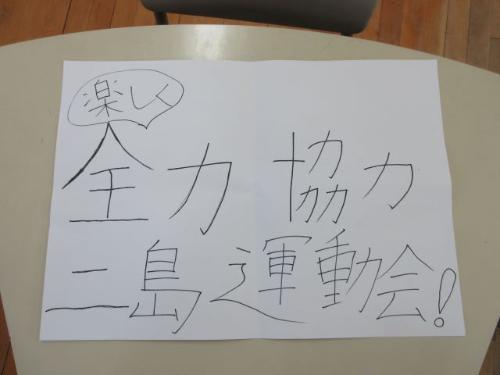 楽しく
全力 協力
二島運動会!